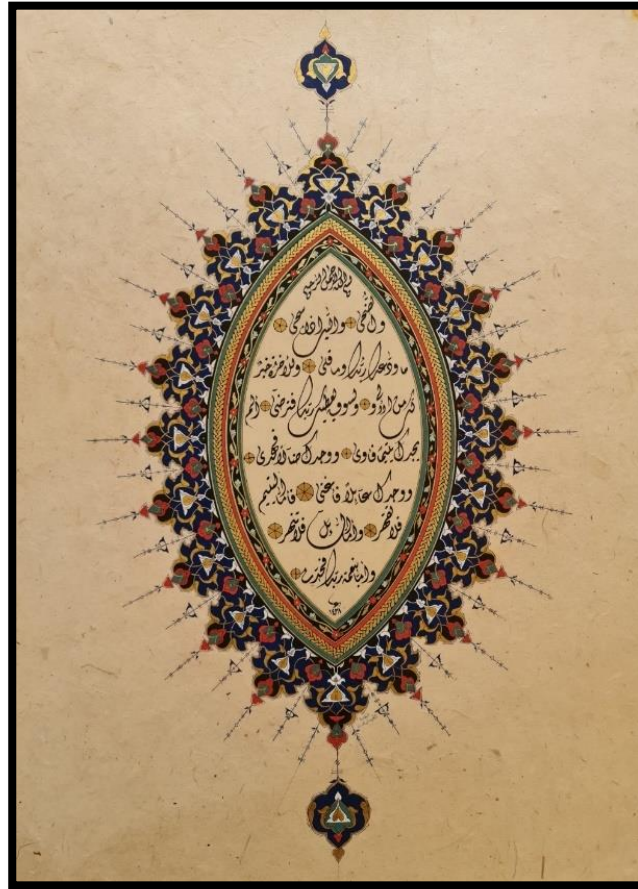 بسم الله الرحمن الرحيم
والضحى والليل اذا سجى
ما ودعك ربك وما قلى وللآخرة خير
لك من الاولى ولسوف يعطيك ربك فترضى الم
يجدك يتيما فاوى ووجدك ضالا فهدى
ووجدك عائلا فاغنى فاما اليتيم
فلا تقهر واما السائل فلا تنهر
واما بنعمة ربك فحدث